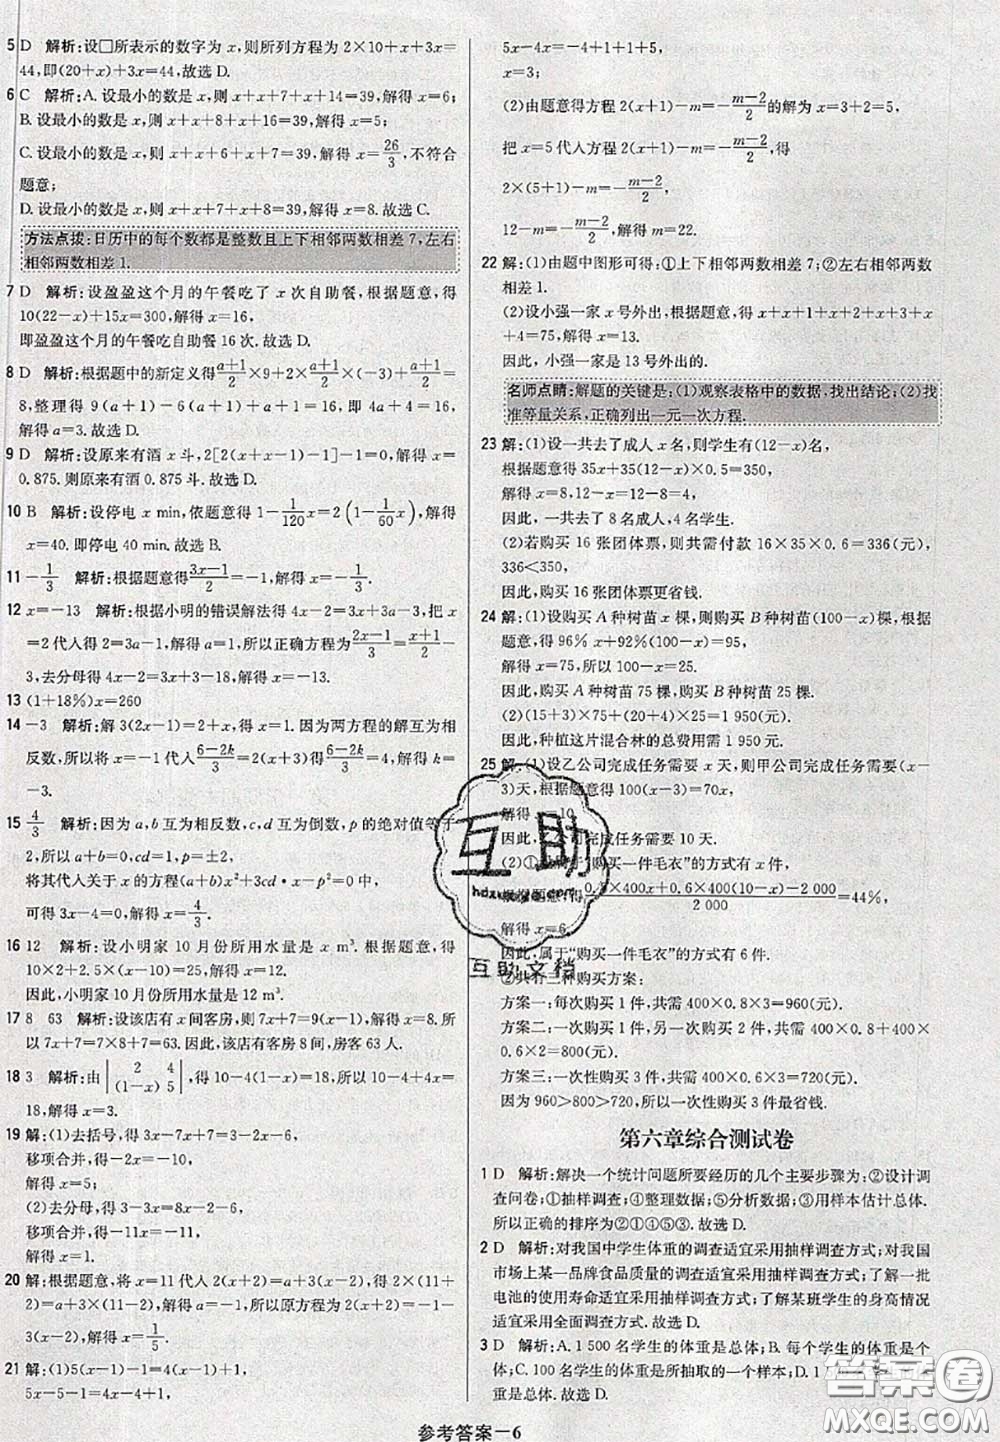 5 D 解析:设□所表示的数字为 x,则所列方程为 2×10+x+3x=
44,即(20+x)+3x=44,故选 D.
6 C 解析:A. 设最小的数是 x,则 x+x+7+x+14=39,解得 x=6;
B. 设最小的数是 x,则 x+x+8+x+16=39,解得 x=5;
C. 设最小的数是 x,则 x+x+6+x+7=39,解得 x=26/3,不符合
题意;
D. 设最小的数是 x,则 x+x+7+x+8=39,解得 x=8.故选 C.
方法点拨:日历中的每个数都是整数且上下相邻两数相差 7,左右
相邻两数相差 1.
7 D 解析:设盈盈这个月的午餐吃了 x 次自助餐,根据题意,得
10(22-x)+15x=300,解得 x=16,
即盈盈这个月的午餐吃自助餐 16 次.故选 D.
8 D 解析:根据题中的新定义得(a+1)/2×9+2×(a+1)/2×(a+1)/2
=8,整理得 9(a+1)-6(a+1)=8+4a,即 3a+3=8+4a,
解得 a=3.故选 D.
9 D 解析:设原来有酒 x 斗,2[2(2x-1)-1]-1=0,解得 x=
0.875.则原来有酒 0.875 斗.故选 D.
10 B 解析:设停电 x min,依题意得 1-1/120x=2(1-1/60x),
解得 x=40.即停电 40 min.故选 B.
11 -1/3 解析:根据题意得(3x-1)/2=-1,解得 x=-1/3.
12 x=-13 解析:根据小明的错误解法得 4x-2=3x+3a-3,把 x
=2 代入得 2=3a-1,解得 a=1,所以正确方程为(2x-1)/3=(x+1)/2
-3,去分母得 4x-2=3x+3-18,解得 x=-13.
13 (1+18%)x=260
14 -3 解析:解 3(2x-1)=2+x,得 x=1.因为两方程的解互为相
反数,所以将 x=-1 代入(6-2k)/3=2(x+3)得(6-2k)/3=4,解得 k=
-3.
15 4/3 解析:因为 a,b 互为相反数,c,d 互为倒数,p 的绝对值等于
2,所以 a+b=0,cd=1,p=±2,
将其代入关于 x 的方程(a+b)x²+3cd·x-p²=0 中,
可得 3x-4=0,解得 x=4/3.
16 12 解析:设小明家 10 月份所用水量是 x m³. 根据题意,得
10×2+2.5×(x-10)=25,解得 x=12.
因此,小明家 10 月份所用水量是 12 m³.
17 8 63 解析:设该店有 x 间客房,则 7x+7=9(x-1),解得 x=8.所
以 7x+7=7×8+7=63.因此,该店有客房 8 间,房客 63 人.
18 3 解析:由|2 4 (1-x) 5|,得 10-4(1-x)=18,所以 10-4+4x=
18,解得 x=3.
19 解:(1)去括号,得 3x-7x+7=3-2x-6,
移项合并,得-2x=-10,
解得 x=5;
(2)去分母,得 3-3x=8x-2-6,
移项合并,得-11x=-11,
解得 x=1.
20 解:根据题意,将 x=11 代入 2(x+2)=a+3(x-2),得 2×(11+
2)=a+3×(11-2),解得 a=-1,所以原方程为 2(x+2)=-1+
3(x-2),解得 x=1/5.
21 解:(1)5(x-1)-1=4(x-1)+1,
5x-5-1=4x-4+1,
5x-4x=-4+1+1+5,
x=3;
(2)由题意得方程 2(x+1)-m=-(m-2)/2的解为 x=3+2=5,
把 x=5 代入方程 2(x+1)-m=-(m-2)/2,得
2×(5+1)-m=-(m-2)/2,
12-m=-(m-2)/2,解得 m=22.
22 解:(1)由题中图形可得:①上下相邻两数相差 7;②左右相邻两数
相差 1.
(2)设小强一家 x 号外出,根据题意,得 x+x+1+x+2+x+3+x
+4+x+5=75,解得 x=13.
因此,小强一家是 13 号外出的.
名师点睛:解题的关键是:(1)观察表格中的数据,找出结论;(2)找
准等量关系,正确列出一元一次方程.
23 解:(1)设一共去了成人 x 名,则学生有(12-x)名,
根据题意得 35x+35(12-x)×0.5=350,
解得 x=8,12-x=12-8=4,
因此,一共去了 8 名成人,4 名学生.
(2)若购买 16 张团体票,则需付款 16×35×0.6=336(元),
336<350,
因此,购买 16 张团体票更省钱.
24 解:(1)设购买 A 种树苗 x 棵,则购买 B 种树苗(100-x)棵,根据
题意,得 96% x+92%(100-x)=95,
解得 x=75,所以 100-x=25.
因此,购买 A 种树苗 75 棵,购买 B 种树苗 25 棵.
(2)(15+3)×75+(20+4)×25=1 950(元),
因此,种植这片混合林的总费用需 1 950 元.
25 解:(1)设乙公司完成任务需要 x 天,则甲公司完成任务需要(x-
3)天,根据题意得 100(x-3)=70x,
解得 x=10
因此,乙公司完成任务需要 10 天.
(2)①设属于“购买一件毛衣”的方式有 x 件,
根据题意,得(0.8×400x+0.6×400(10-x)-2 000)/2 000=44%,
解得 x=6
因此,属于“购买一件毛衣”的方式有 6 件.
②共有三种购买方案:
方案一:每次购买 1 件,共需 400×0.8×3=960(元),
方案二:一次购买 1 件,另一次购买 2 件,共需 400×0.8+400×
0.6×2=800(元),
方案三:一次性购买 3 件,共需 400×0.6×3=720(元),
因为 960>800>720,所以一次性购买 3 件最省钱.
第六章综合测试卷
1 D 解析:解决一个统计问题所要经历的几个主要步骤为:②设计调
查问卷;①抽样调查;④整理数据;⑤分析数据;③用样本估计总体.
所以正确的排序为②①④⑤③.故选 D.
2 D 解析:对我国中学生体重的调查适宜采用抽样调查方式;对我国
市场上某一品牌食品质量的调查适宜采用抽样调查方式;了解一批
电池的使用寿命适宜采用抽样调查方式;了解某班学生的身高情况
适宜采用全面调查方式.故选 D.
3 D 解析:A. 1 500 名学生的体重是总体;B. 每个学生的体重是个
体;C. 100 名学生的体重是所抽取的一个样本;D. 1
重是总体.故选 D.
参考答案—6
互助
hdzuoye.com
互助文档
答案圈
MXQE.COM